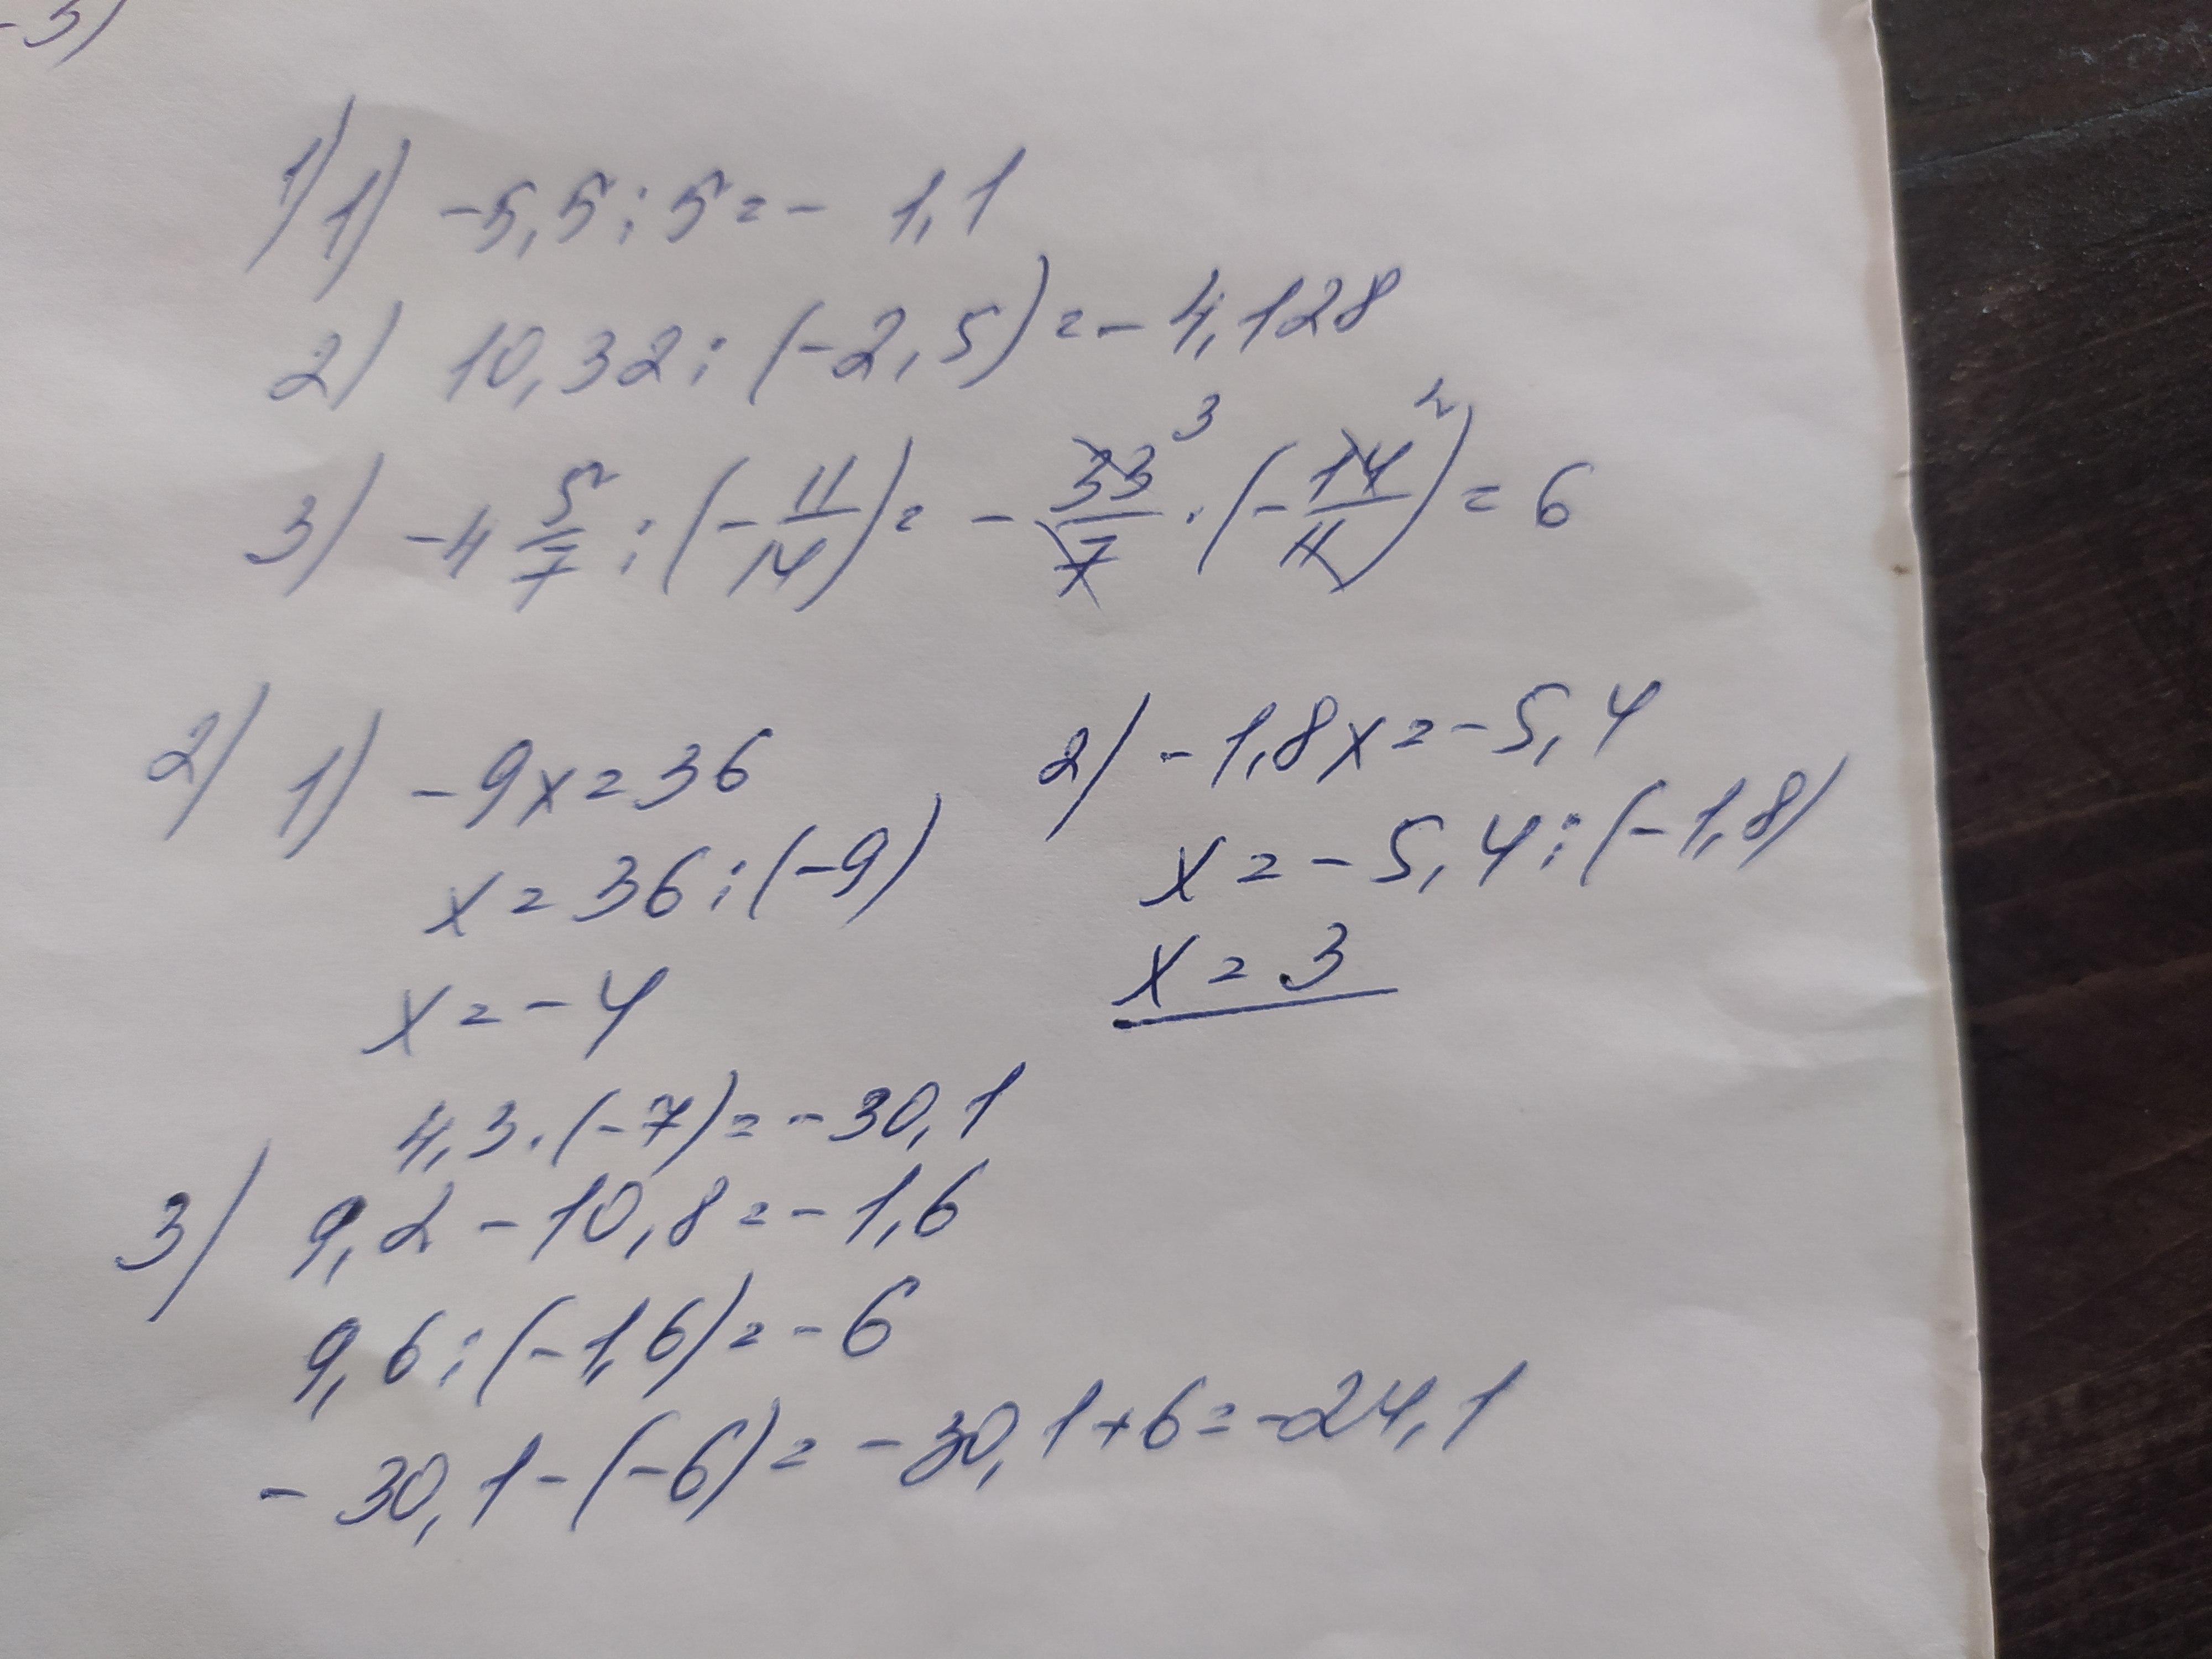 -3)
1) 1) -5,5 : 5 = - 1,1
2) 10,32 : (-2,5) = - 4,128
3) -4 5/7 : (- 11/14) = - 33/7 ³ · (- 14/11)² = 6
2) 1) -9x = 36
x = 36 : (-9)
x = - 4
2) -1,8x = - 5,4
x = - 5,4 : (-1,8)
x = 3
4,3 · (-7) = - 30,1
3) 9,2 - 10,8 = - 1,6
9,6 : (-1,6) = - 6
- 30,1 - (-6) = - 30,1 + 6 = -24,1